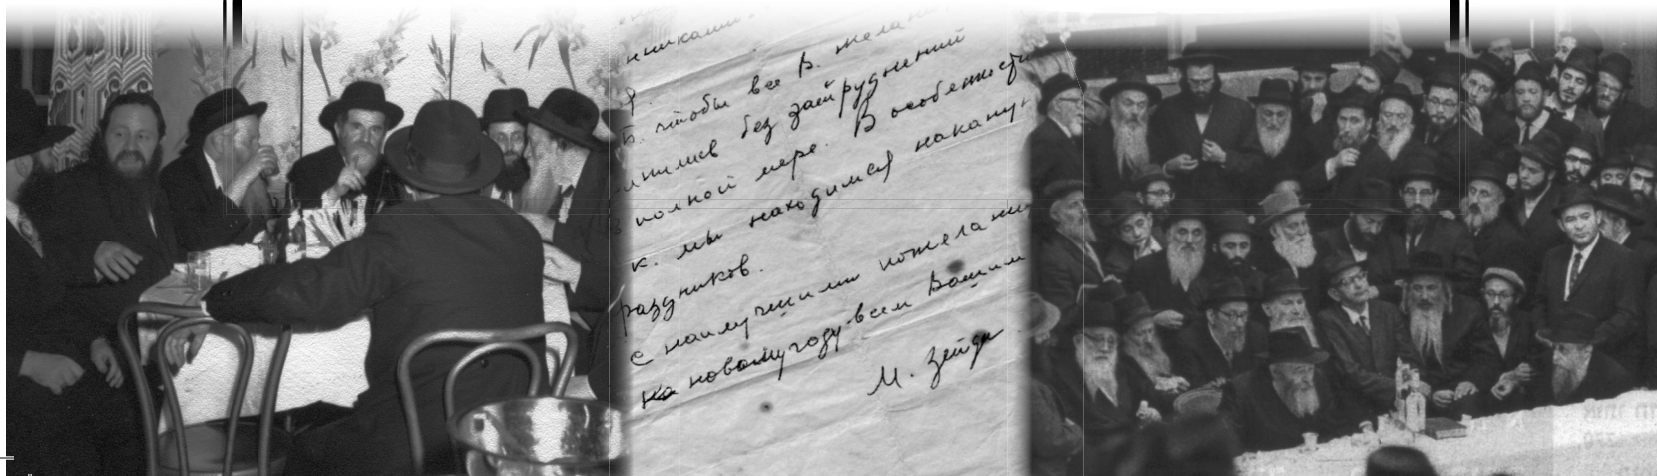 никами
Я.
Б. чтобы все В. жела
лнились без затруднений
в полной мере. В особенности
к. мы находимся накану
раздников.
С наилучшими пожелани
ко новому году всем Вашим
М. Зейде